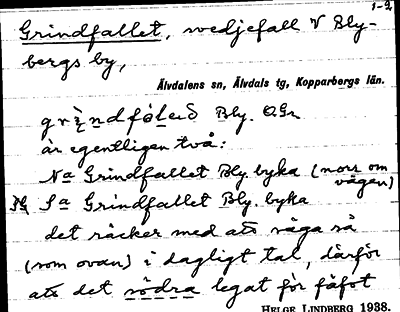 1-2
Grindfallet, svedjefall V Bly-
bergs by,
Älvdalens sn, Älvdals tg, Kopparbergs län.
Bly.
är egentligen två:
Na Grindfallet Bly. byka (norr om
vägen)
Sa Grindfallet Bly. byka
det räcker med att säga så
(som ovan) i dagligt tal, därför
att det södra legat för fäfot
HELGE LINDBERG 1938.